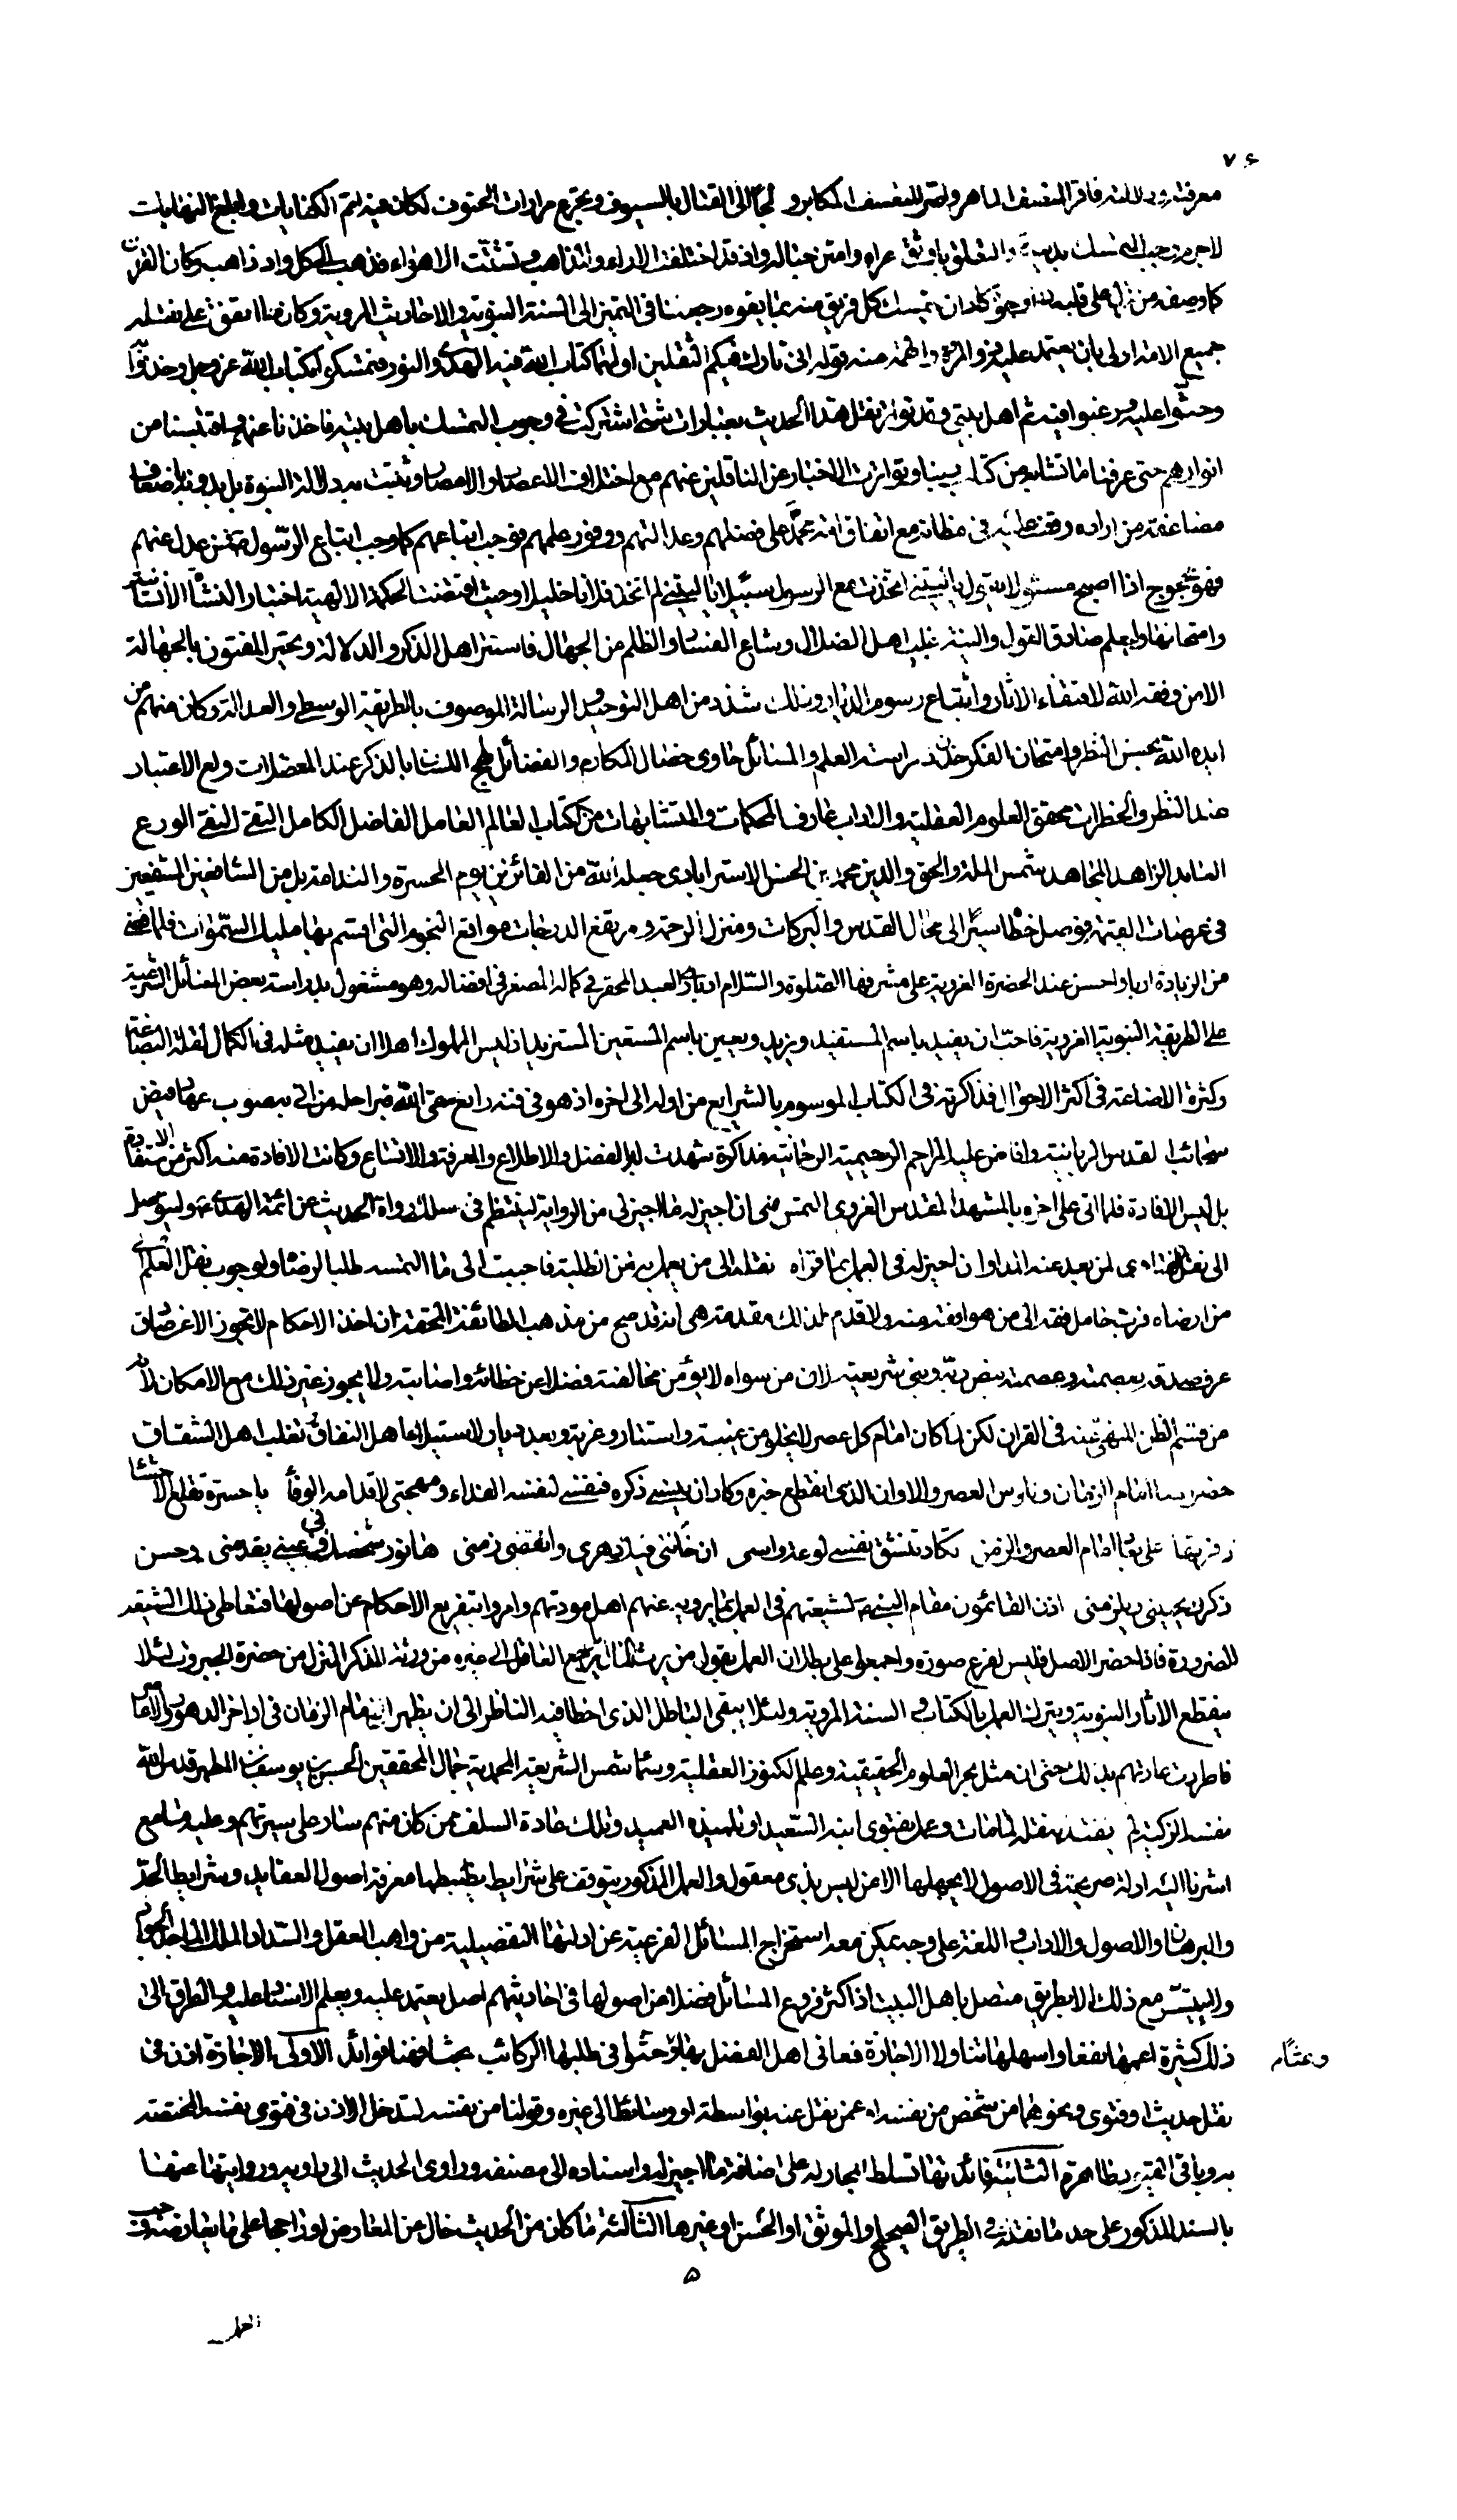 ٧٤
معرفته فاقر المنصف الماهر واصر المتعسف المكابر و لجأ الى القتال بالسيوف وتجرع مرارات الحتوف لكان فيه اتم الكفايات وابلغ النهايات
لا جرم وجب التمسك بدينه والتعلق باوثق عراه وامتن حباله واذ قد اختلفت الاراء والمذاهب وتشتت الاهواء فذهب الى كل واد ذاهب وكان القران
كما وصفه من نزل على قلبه ذا وجوه كاد ان يتمسك كل فريق منه بما يقوه رجعنا في التميز الى السنة النبوية والاحاديث المروية وكان ما اتفق على نقله
جميع الامة اولى بان يعتمد عليه قوله اني تارك فيكم الثقلين اولهما كتاب الله فيه الهدى والنور فتمسكوا بكتاب الله عز وجل وخذوا
وحثوا عليه ورغبوا فيه ثم اهل بيتي وقد تواتر نقل هذا الحديث بعبارات شتى اشتركت في وجوب التمسك باهل بيته فاخذنا عنهم واقتبسنا من
انوارهم حتى عرفنا ما تشابه من كتاب ربنا وتواترت الاخبار عن الناقلين عنهم مع اختلاف الاعصار والامصار وثبتت به دلالة النبوة بل بدونه باضعاف
مضاعفة من اراده وقف عليه في مظانه مع اتفاق امة محمد على فضلهم وعدالتهم ووفور علمهم فوجب اتباعهم كما وجب اتباع الرسول فمن عدل عنهم
فهو محجوج اذا اصبح مسئولا يا ليتني اتخذت مع الرسول سبيلا يا ليتني لم اتخذ فلانا خليلا وحيث اقتضت الحكمة الالهية اختبار النشأة الانسانية
وامتحانها وليعلم صادق القول والنية غلب اهل الضلال وشاع الفساد والظلم من الجهال فاستتر اهل الذكر والدلالة وتحير المفتون بالجهالة
الا من وفقه الله لاقتفاء الاثار واتباع رسوم الديار وذلك شذذ من اهل التوحيد والرسالة الموصوف بالطريقة الوسطى والعدالة وكان منهم من
ايده الله بحسن النظر وامتحان الفكر خدن دراسة العلم والمسائل حاوي خصال المكارم والفضائل لهج اللسان بالذكر عند المعضلات ولع الاعتبار
عند النظر والخطرات محقق العلوم العقلية والاداب عارف المحكمات والمتشابهات من الكتاب العالم العامل الفاضل الكامل التقي النقي الورع
العابد الزاهد المجاهد شمس الملة والحق والدين محمد بن الحسن الاسترابادي جعله الله من الفائزين يوم الحسرة والندامة بل من الشافعين المشفعين
في عرصات القيمة فوصل خطا سيره الى محال القدس والبركات ومنزل الرحمة ومرتفع الدرجات مواقع النجوم التي اقسم بها مليك السموات فلما قضى
من الزيارة اربا واحسن عند الحضرة الغروية على مشرفها الصلوة والسلام ادبا العبد المحقر في كماله المصغر في افضاله وهو مشغول بدراسة بعض المسائل الشرعية
على الطريقة النبوية الغروية فاحب ان يفيد باسم المستفيد ويزيد ويعين باسم المستعين المستزيد اذ ليس المملوك اهلا ان يفيد مثله في الكمال لقلة البضاعة
وكثرة الاضاعة في اكثر الاحوال فذاكرته في الكتاب الموسوم بالشرايع من اوله الى اخره اذ هو في فنه رائع سقى الله قبر احله من اتى بصوب عهاد فيض
سحائب القدس الربانية وافاض عليه المراحم الرحيمية الرحمانية مذاكرة شهدت له بالفضل والاطلاع والمعرفة والاتساع وكانت الافادة منه اكثر من الاستفادة
بل ليس الا الافادة فلما اتى على اخره بالمشهد المقدس الغروي التمس مني ان اجيز له ما اجيز لي من الرواية لينتظم في سلك رواة الحديث عن ائمة الهدى وليتوصل
الى نقل الفتاوى لمن بعد عنه المدى وان اجيز له في العمل بما اقراه نقله الى من يعمل به من الطلبة فاجبت الى ما التمسه طلبا لرضاه ولوجوب نقل العلم
من ارضاه فرب حامل فقه الى من هو افقه منه ولاقدم لذلك مقدمة هي انه قد صح من مذهب الطائفة المحقة ان اخذ الاحكام لا تجوز الا عن صادق
عرف صدقه بعصمته وعصمته بنص ربه ونبي شريعته لان من سواه لا يؤمن مخالفته فضلا عن خطائه واصابته ولما يجوز غير ذلك مع الامكان لانه
من قسم الظن المنهي عنه في القران لكن لما كان امام كل عصر لا يخلو من غيبة واستتار وغربة وبعد ديار لاستيلاء اهل النفاق وتغلب اهل الشقاق
خصوصا امام الزمان وناموس العصر والاوان الذي انقطع خبره وكاد ان ينسى ذكره فنفسي لنفسه الفداء ومهجتي لاقدامه الوفاء يا حسرة تقلع الاحشا
زفرتها على بقا امام العصر والزمن تكاد تنشق نفسي لوعة واسى ان خانني فيك دهري وانقضى زمني ها نور شخصك في عيني يقدمني وحسن
ذكرك يحييني ويلزمني اذن القائمون مقام النبي ص لشيعتهم في العمل بما يرويه عنهم اهل مودتهم وامروا بتفريع الاحكام عن اصولها فتعاطى ذلك الشيعة
للضرورة فاذا حضر الاصل فليس لفرع صورة واجمعوا على بطلان العمل بقول من يرجع العاقل الى غيره من ورثة الذكر المنزل من حضرة الجبروت لئلا
ينقطع الاثار النبوية ويترك العمل بالكتاب والسنة المروية ولئلا يبقى الباطل الذي اخطا فيه الناظر الى ان يظهر امام الزمان في اواخر الدهور والاعصار
فاطردت عادتهم بذلك حتى ان مثل بحر العلوم الحقيقية وعلم الكنوز العقلية وسماء شمس الشريعة المحمدية جمال المحققين الحسن بن يوسف بن المطهر قدس الله
نفسه الزكية لم يعتد بنقله لما مات وعمل بفتوى ابنه السعيد او تلميذه العميد وتلك عادة السلف من كان منهم سار على سيرتهم وعليه وما مع
اشرنا اليه ادلة صريحة في الاصول لا يجهلها الا من ليس بذي معقول والعمل المذكور يتوقف على شرايط يضبطها معرفة اصول العقايد وشرايط الحد
والبرهان والاصول والاداب واللغة على وجه يمكن معه استخراج المسائل الفرعية عن ادلتها التفصيلية من واهب العقل والسداد الملك
ولا يتيسر مع ذلك الا بطريق متصل باهل البيت اذ اكثر فروع المسائل فضلا عن اصولها في احاديثهم اصل يعتمد عليه ويعلم الاستناد عليه والطرق الى
ذلك كثيرة اعمها نفعا واسهلها تناولا الاجازة فعانى اهل الفضل بها وحثوا في طلبها الركائب فهنا فوائد الاولى الاجازة اذن في
نقل حديث او فتوى ونحوهما من شخص من نفسه او عمن نقل عنه بواسطة او وسائط الى غيره وقولنا من نفسه لتدخل الاذن في فتوى نفسه المختصة
به وباقي القيود ظاهرة الثانية فائدتها تسلط المجاز له على اضافة ما اجيز له واسناده الى مصنفه وراوي الحديث الى راويه وروايتها عنهما
بالسند المذكور على حد ما نقله في الطريق الصحيح او الموثق او الحسن او غيرها الثالثة ما كان من الحديث خال من المعارض او راجحا على ما يعارضه وجب